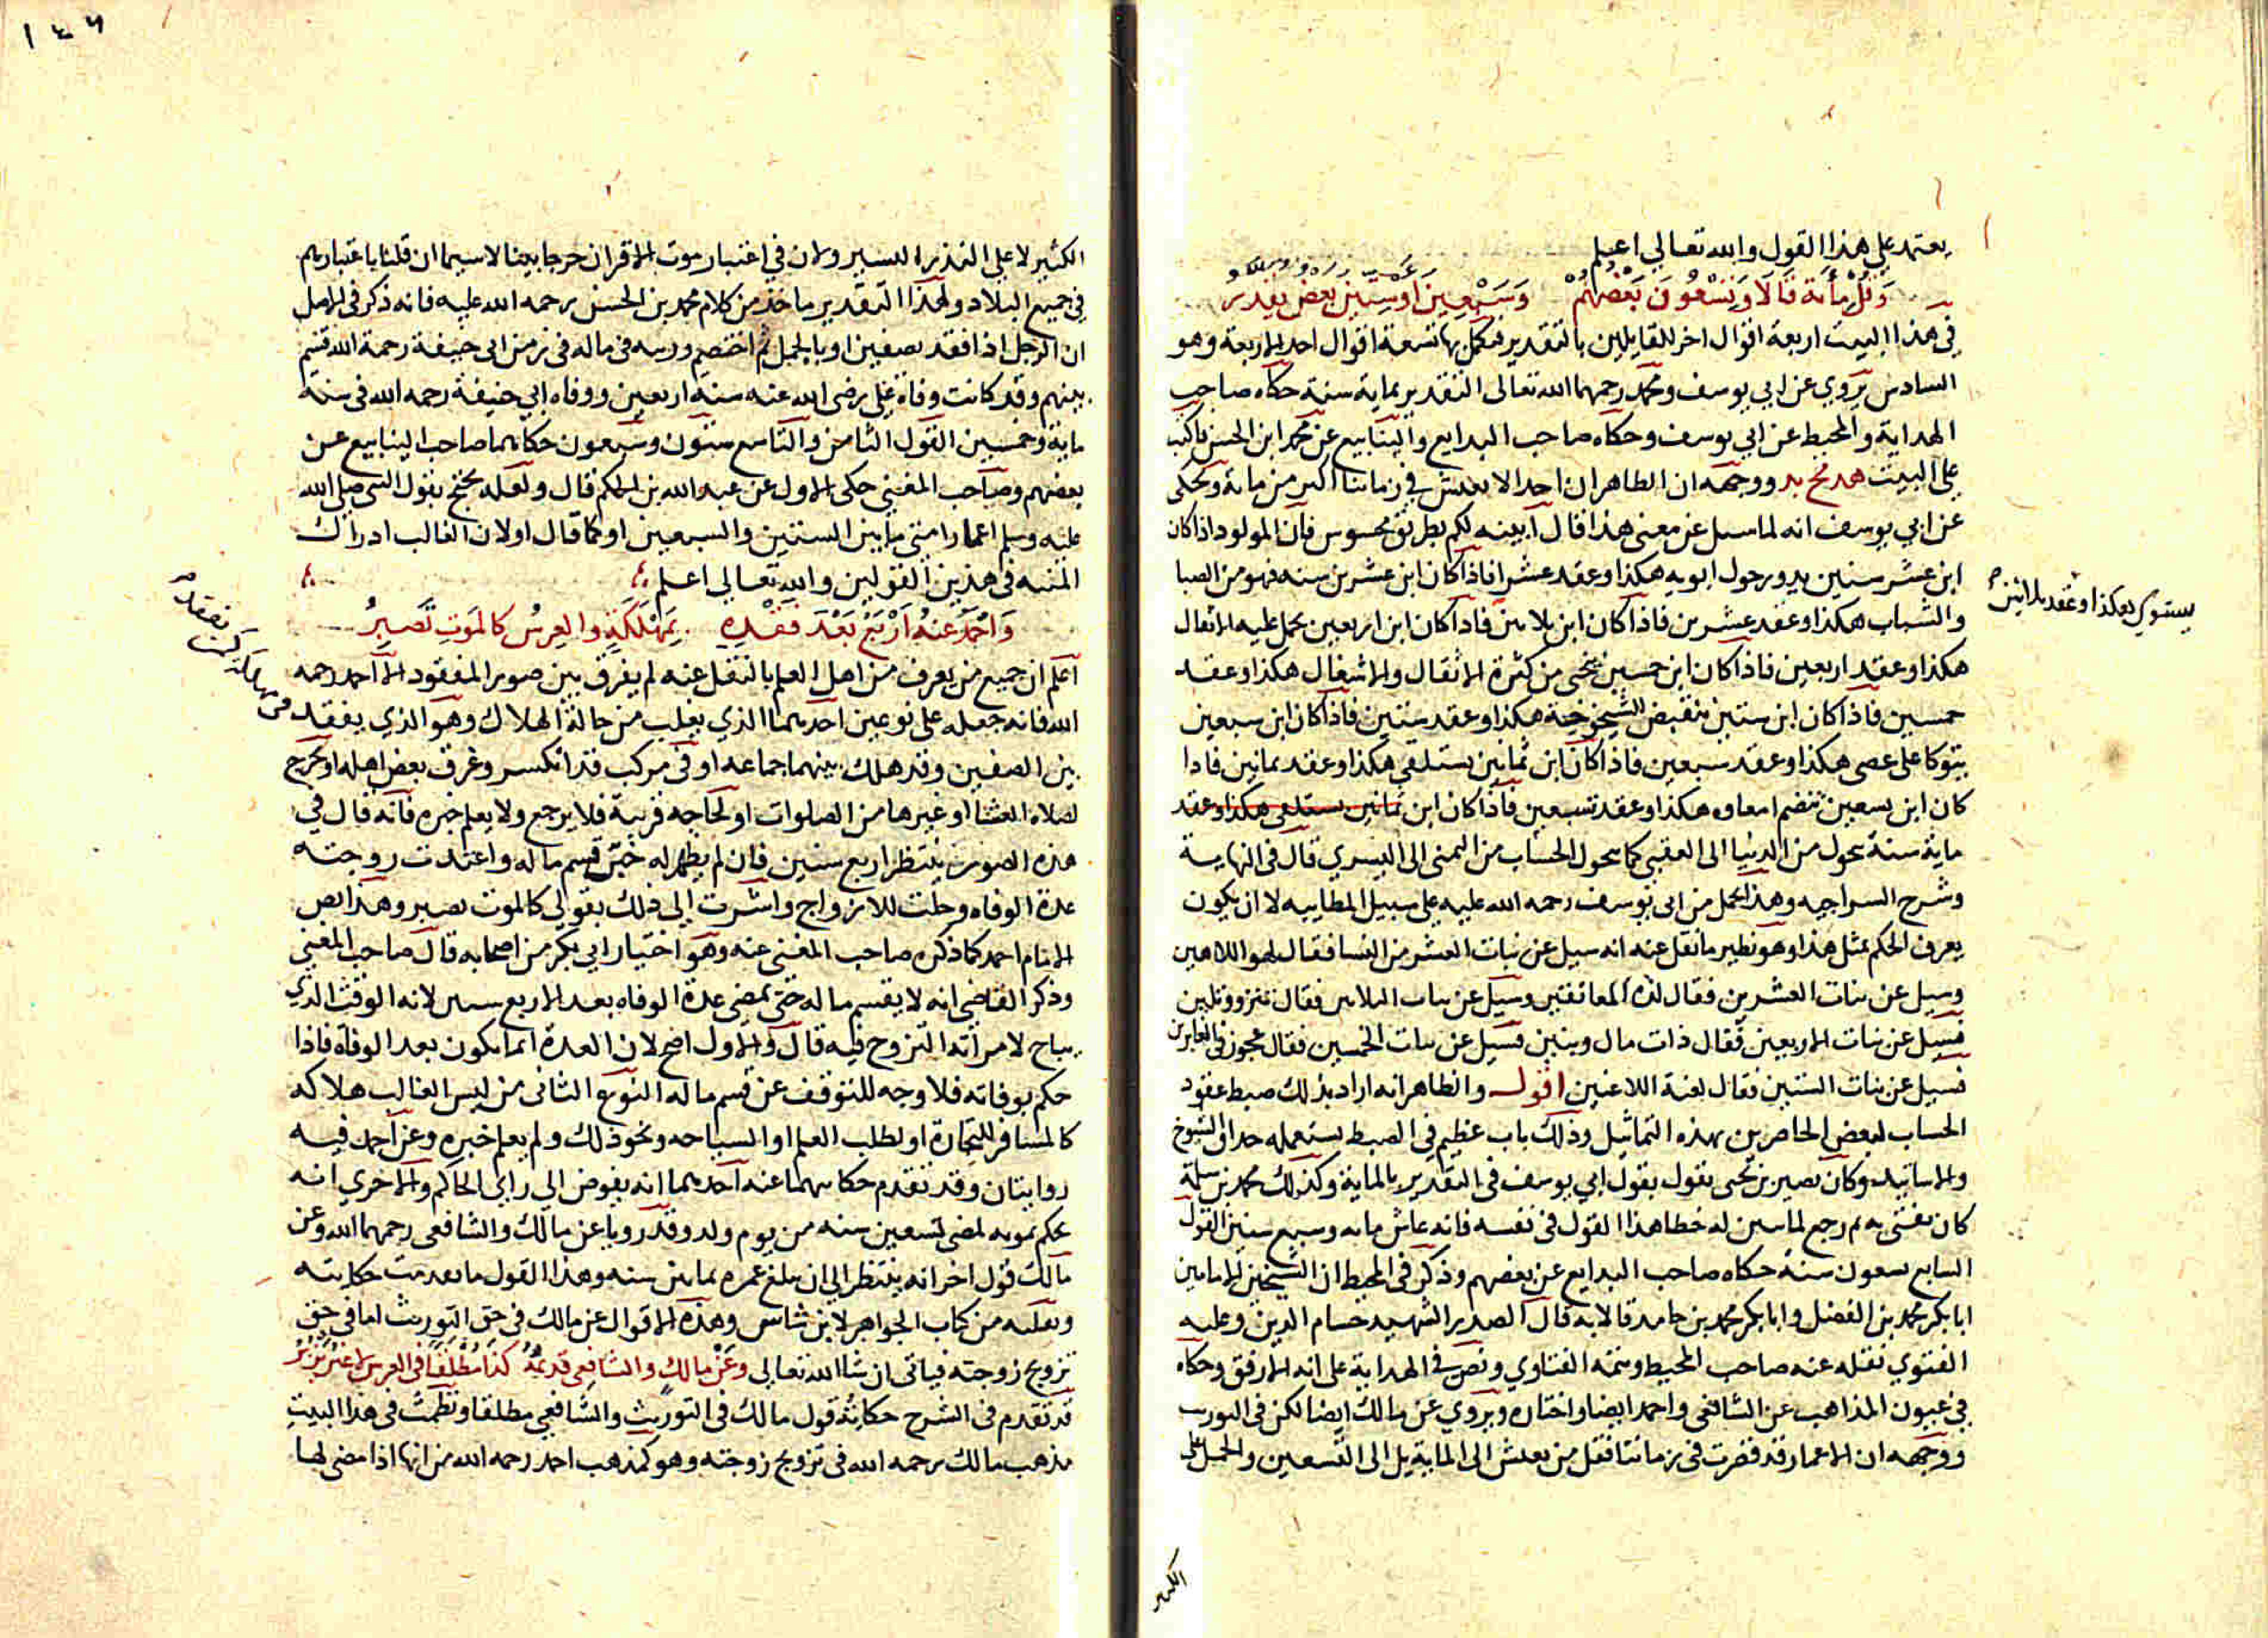 يعتمد على هذا القول والله تعالى اعلم
وقل مأية قالا وتسعون بعضهم وسبعين اوستين بعض يقدر
في هذا البيت اربعة اقوال اخر للقايلين بالتقدير فتكمل بها تسعة اقوال احد الاربعة وهو
السادس يروي عن ابي يوسف ومحمد رحمهما الله تعالى التقدير بماية سنة حكاه صاحب
الهداية والمحيط عن ابي يوسف وحكاه صاحب البدايع والينابيع عن محمد ابن الحسن
على البيت ووجهه ان الظاهر ان احدا لا يعيش في زماننا اكثر من ماية ويحكى
عن ابي يوسف انه لما سيل عن معنى هذا قال ابينه لكم بطريق محسوس فان المولود اذا كان
ابن عشر سنين يدور حول ابويه هكذا وعقد عشرا فاذا كان ابن عشرين سنه فهو من الصبا
والشباب هكذا وعقد عشرين فاذا كان ابن ثلاثين فاذا كان ابن اربعين يحمل عليه الاثقال
يستوي هكذا وعقد ثلاثين
هكذا وعقد اربعين فاذا كان ابن خمسين ينحني من كثرة الاثقال والاشغال هكذا وعقد
خمسين فاذا كان ابن ستين ينقبض الشيخوخة هكذا وعقد ستين فاذا كان ابن سبعين
يتوكا على عصى هكذا وعقد سبعين فاذا كان ابن ثمانين يستلقي هكذا وعقد ثمانين فاذا
كان ابن تسعين تنضم امعاوه هكذا وعقد تسعين فاذا كان ابن ثمانين يستلقي هكذا وعقد
ماية سنة يحول من الدنيا الى العقبى كما يحول الحساب من اليمنى الى اليسرى قال في النهاية
وشرح السراجيه وهذا يحمل من ابي يوسف رحمه الله عليه على سبيل المطايبه لا ان يكون
يعرف الحكم بمثل هذا وهو نظير ما نقل عنه انه سيل عن بنات العشر من النسا فقال لهو اللاهين
وسيل عن بنات العشرين فقال لذة المعانقين وسيل عن بنات الثلاثين فقال
فسيل عن بنات الاربعين فقال ذات مال وبنين فسيل عن بنات الخمسين فقال عجوز في الغابرين
فسيل عن بنات الستين فقال لعنة اللاعنين اقول والظاهر انه اراد بذلك ضبط عقود
الحساب لبعض الحاضرين بهذه التماثيل وذلك باب عظيم في الضبط يستعمله حذاق الشيوخ
والاساتيذ وكان نصير بن يحيى يقول بقول ابي يوسف في التقدير بالماية وكذلك محمد بن سلمة
كان يفتي به ثم رجع لما تبين له خطا هذا القول في نفسه فانه عاش مايه وسبع سنين القول
السابع تسعون سنة حكاه صاحب البدايع عن بعضهم وذكر في المحيط ان الشيخين الامامين
ابا بكر محمد بن الفضل وابا بكر محمد بن حامد قالا به قال الصدر الشهيد حسام الدين وعليه
الفتوي نقله عنه صاحب المحيط وتتمه الفتاوي ونص في الهداية على انه الارفق وحكاه
في عيون المذاهب عن الشافعي واحمد ايضا واختاره ويروي عن مالك ايضا لكن في التوريث
ووجهه ان الاعمار قد قصرت في زماننا فقل من يعيش الى الماية بل الى التسعين والحمل على
الكثير
١٤٦
الكثير لا على النذير اليسير ولان في اعتبار موت الاقران حرجا بينا لا سيما ان قلنا باعتبارهم
في جميع البلاد ولهذا التقدير ماخذ من كلام محمد بن الحسن رحمه الله عليه فانه ذكر في الاصل
ان الرجل اذا فقد بصفين او بالجمل ثم اختصم ورثته في ماله في زمن ابي حنيفة رحمة الله قسم
بينهم وقد كانت وفاة علي رضى الله عنه سنة اربعين ووفاه ابي حنيفة رحمه الله في سنة
ماية وخمسين القول الثامن والتاسع ستون وسبعون حكاهما صاحب الينابيع عن
بعضهم وصاحب المغني حكى الاول عن عبد الله بن الحكم قال ولعله يحتج بقول النبي صلى الله
عليه وسلم اعمار امتي ما بين الستين والسبعين او كما قال اولان الغالب ادراك
المنيه في هذين القولين والله تعالي اعلم
وأحمد عنه أربع بعد فقده بمهلكة والعرس كالموت تصبر
اعلم ان جميع من يعرف من اهل العلم بالنقل عنه لم يفرق بين صور المفقود الا احمد رحمه
الله فانه جعله على نوعين احدهما الذي يغلب من حالة الهلاك وهو الذي يفقد
بين الصفين وقد هلك بينهما جماعه او في مركب قد انكسر وغرق بعض اهله او يخرج
لصلاه العشا او غيرها من الصلوات او لحاجه قريبة فلا يرجع ولا يعلم خبره فانه قال في
هذه الصورة ينتظر اربع سنين فان لم يظهر له خبر قسم ماله واعتدت زوجته
عدة الوفاه وحلت للازواج واشرت الى ذلك بقولي كالموت تصبر وهذا نص
الامام احمد كما ذكره صاحب المغني عنه وهو اختيار ابي بكر من اصحابه قال صاحب المغني
وذكر القاضي انه لا يقسم ماله حتى تمضى عدة الوفاه بعد الاربع سنين لانه الوقت الذي
يباح لامراته التزوج فيه قال والاول اصح لان العدة انما تكون بعد الوفاة فاذا
حكم بوفاته فلا وجه للتوقف عن قسم ماله النوع الثاني من ليس الغالب هلاكه
كالمسافر للتجارة او لطلب العلم او السياحه ونحو ذلك ولم يعلم خبره وعن احمد فيه
روايتان وقد تقدم حكايتهما عنه احدهما انه يفوض الى راي الحاكم والاخرى انه
يحكم بموته لمضى تسعين سنه من يوم ولد وقد رويا عن مالك والشافعي رحمهما الله وعن
مالك قول اخر انه ينتظر الى ان يبلغ عمره ثمانين سنه وهذا القول ما تقدمت حكايته
ونقلته من كتاب الجواهر لابن شاس وهذه الاقوال عن مالك في حق التوريث اما في حق
تزويج زوجته فياتي ان شا الله تعالى وعن مالك والشافعي قديمه كذا مطلقا في العرس
قد تقدم في الشرح حكاية قول مالك في التوريث والشافعي مطلقا ونظمت في هذا البيت
مذهب مالك رحمه الله في تزويج زوجته وهو كمذهب احمد رحمه الله من انها اذا مضى لها